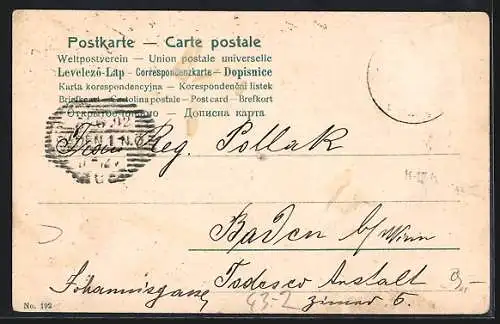 Postkarte — Carte postale
Weltpostverein — Union postale universelle
Levelező-Lap — Correspondenzkarte — Dopisnice
Karta korespondencyjna — Korespondenční lístek
Briefkaart — Cartolina postale — Post card — Brefkort
Открытое письмо — Дописна карта
Reg. Pollak
Baden b/Wien
Johannisgasse Todesco Anstalt
43-2 Zimmer 6.
No. 192